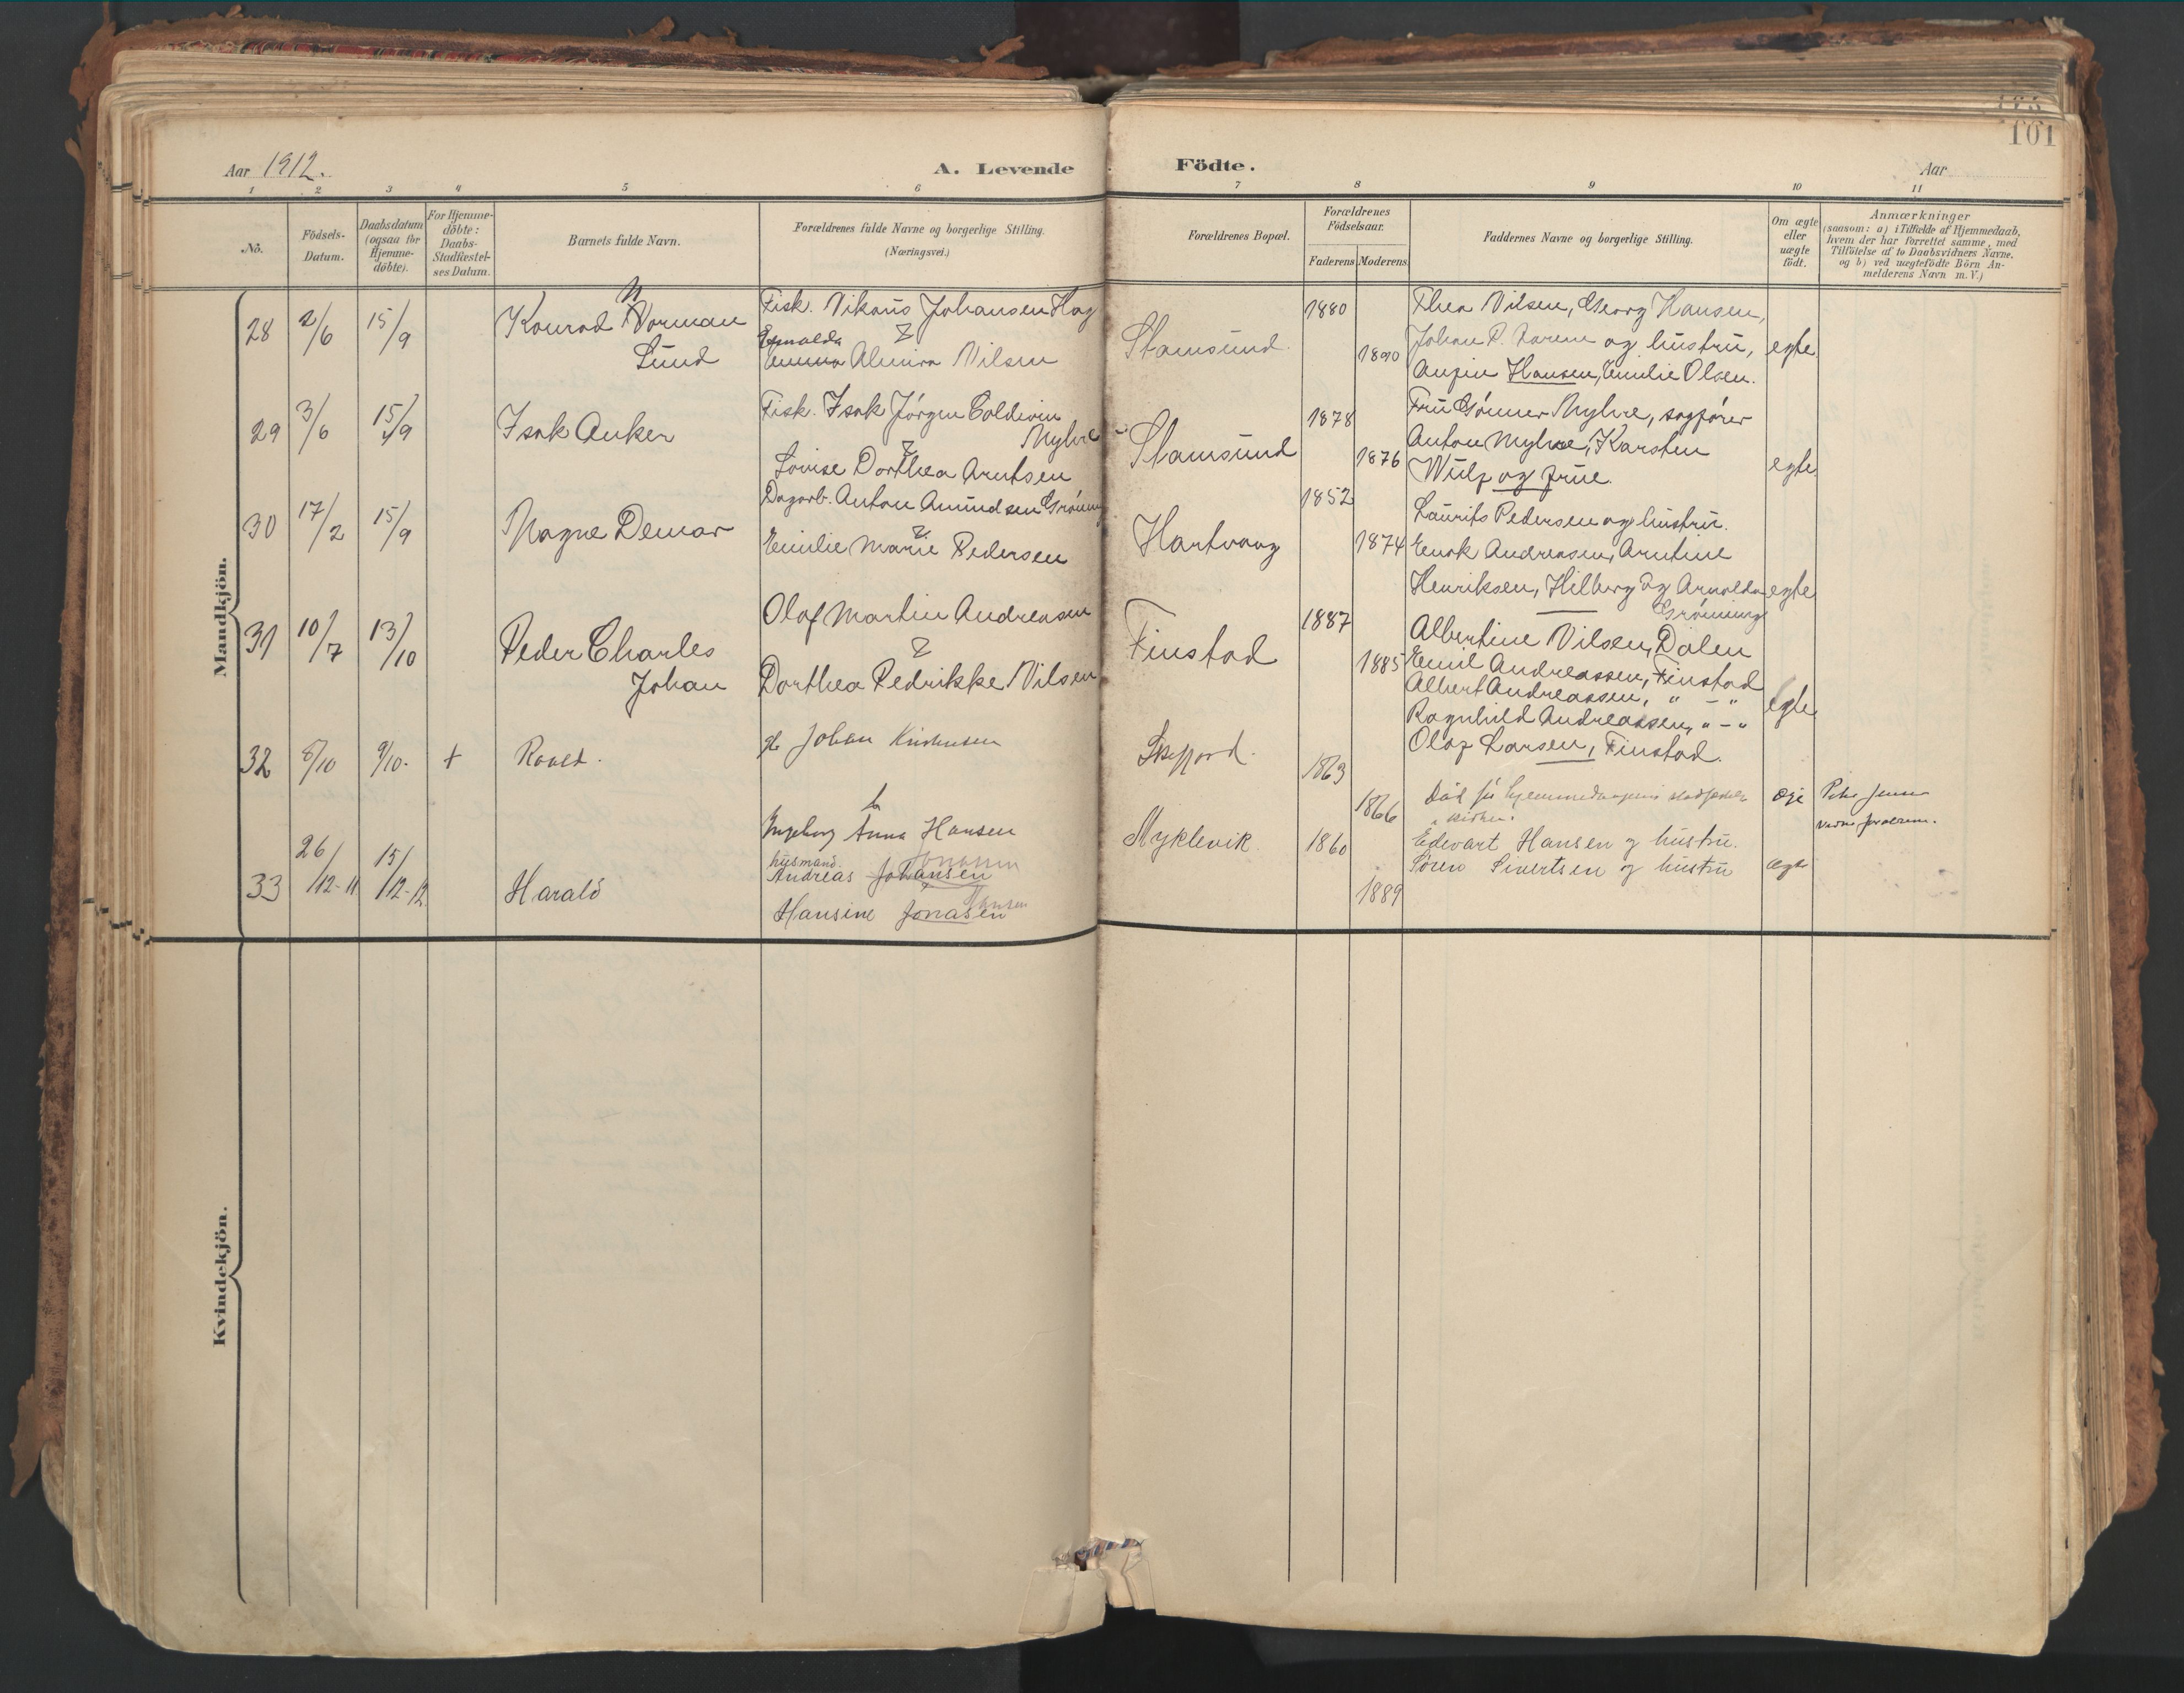 101
Aar 1912.
A. Levende
Födte.
Aar
1 2 3 4 5 6 7 8 9 10 11
Nó.
Födsels-
Datum.
Daabsdatum
(ogsaa for
Hjemme-
döbte).
For Hjemme-
döbte:
Daabs-
Stadfæstel-
ses Datum.
Barnets fulde Navn.
Forældrenes fulde Navne og borgerlige Stilling.
(Næringsvei.)
Forældrenes Bopæl.
Forældrenes
Födselsaar.
Faderens Moderens
Faddernes Navne og borgerlige Stilling.
Om ægte
eller
uægte
födt.
Anmærkninger
(saasom: a) i Tilfælde af Hjemmedaab,
hvem der har forrettet samme, med
Tilföielse af to Daabsvidners Navne.
og b) ved uægtefödte Börn An-
melderens Navn m. V.)
Mandkjön.
28 2/6 15/9
Konrad Norman
Lund
Fisk. Nikaus Johansen Hag
&
Almira Nilsen
Stamsund
1880
1890
Thea Nilsen, Georg Hansen,
Johan P. og hustru,
Hansen, Emilie Olsen.
egte
29 3/6 15/9
Isak Anker
Fisk. Isak Jörgen Coldevin
Myhre
&
Lovise Dorthea Arntsen
Stamsund
1878
1876
Fru Gönner Myhre, sagförer
Anton Myhre, Karsten
Wulf og frue.
egte
30 17/2 15/9
Magne Demar
Dagarb. Anton Amundsen Gröning
&
Emilie Marie Pedersen
Hartvaag
1852
1874
Laurits Pedersen og hustru.
Enok Andreasen, Arntine
Henriksen, Hilberg og Arnolda
Gröning
egte
31 10/7 13/10
Peder Charles
Johan
Olaf Martin Andreasen
&
Dorthea Pedrikke Nilsen
Finstad
1887
1885
Albertine Nilsen, Dalen
Emil Andreassen, Finstad
Albert Andreassen, " – "
Ragnhild Andreassen, " – "
Olaf Larsen, Finstad.
egte
32 8/10 9/10. +
Johan
Ingeborg Anna Hansen
1863
1866
33 26/12-11 15/12-12
Harald
husmand.
Andreas Johansen
Hansine Jonasen
Hansen
Myklevik
1860
1889
Edevart Hansen og hustru.
Sören Sivertsen og hustru
Kvindekjön.